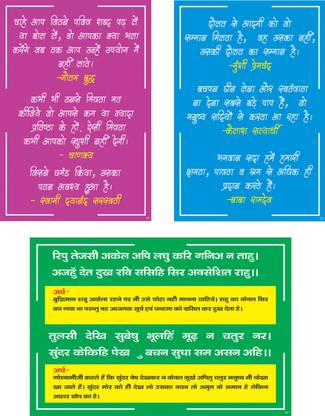 चाहे आप जितने पवित्र शब्द पढ़ लें
या बोल लें, वो आपका क्या भला
करेंगे जब तक आप उन्हें उपयोग में
नहीं लाते।
-गौतम बुद्ध
कभी भी उनसे मित्रता मत
कीजिये जो आपसे कम या ज्यादा
प्रतिष्ठा के हों. ऐसी मित्रता
कभी आपको ख़ुशी नहीं देगी।
- चाणक्य
जिसने घमंड किया, उसका
पतन अवश्य हुआ है।
- स्वामी दयानंद सरस्वती
दौलत से आदमी को जो
सम्मान मिलता है, वह उसका नहीं,
उसकी दौलत का सम्मान है।
-मुंशी प्रेमचंद
बचपन छीन लेना और स्वतंत्रता
ना देना सबसे बड़े पाप हैं, जो
मनुष्य सदियों से करता आ रहा है।
-कैलाश सत्यार्थी
भगवान सदा हमें हमारी
क्षमता, पात्रता व श्रम से अधिक ही
प्रदान करते हैं।
-बाबा रामदेव
रिपु तेजसी अकेल अपि लघु करि गनिअ न ताहु।
अजहुँ देत दुख रवि ससिहि सिर अवसेशित राहु।।
अर्थ-
बुद्धिमान शत्रु अकेला रहने पर भी उसे छोटा नही मानना चाहिये। राहु का केवल सिर
बच गया था परन्तु वह आजतक सूर्य एवं चन्द्रमा को ग्रसित कर दुख देता है।
तुलसी देखि सुबेषु भूलहिं मूढ़ न चतुर नर।
सुंदर केकिहि पेख बचन सुधा सम असन अहि।।
अर्थ-
गोस्वामीजी कहते हैं कि सुंदर वेष देखकर न केवल मूर्ख अपितु चतुर मनुष्य भी धोखा
खा जाते हैं। सुंदर मोर को ही देख लो उसका वचन तो अमृत के समान है लेकिन
आहार साँप का है।